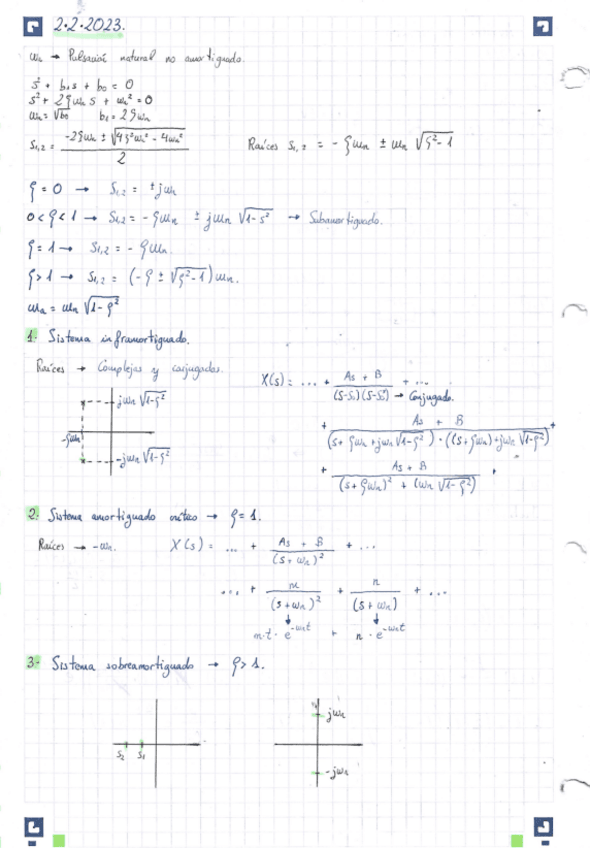 2·2·2023.
ωn → Pulsación natural no amortiguado.
s² + b₁s + b₀ = 0
s² + 2ζωn s + ωn² = 0
ωn = √b₀   b₁ = 2ζωn
S₁,₂ = (-2ζωn ± √(4ζ²ωn² - 4ωn²)) / 2   Raíces S₁,₂ = -ζωn ± ωn √(ζ²-1)
ζ = 0 → S₁,₂ = ±jωn
0 < ζ < 1 → S₁,₂ = -ζωn ± jωn √(1-ζ²) → Subamortiguado.
ζ = 1 → S₁,₂ = -ζωn.
ζ > 1 → S₁,₂ = (-ζ ± √(ζ²-1)) ωn.
ωa = ωn √(1-ζ²)
1. Sistema inframortiguado.
Raíces → Complejas y conjugadas.
jωn √(1-ζ²)
-ζωn
-jωn √(1-ζ²)
X(s) = ... + (As + B) / ((s-s₁)(s-s₁*)) + ... → Conjugado.
+ (As + B) / ((s + ζωn + jωn √(1-ζ²)) · ((s+ζωn)+jωn √(1-ζ²))) +
+ (As + B) / ((s+ζωn)² + (ωn √(1-ζ²))
2. Sistema amortiguado crítico → ζ = 1.
Raíces → -ωn.   X(s) = ... + (As + B) / (s + ωn)² + ...
... + m / (s+ωn)² + n / (s+ωn) + ...
m·t · e^-ωnt + n · e^-ωnt
3. Sistema sobreamortiguado → ζ > 1.
S₂ S₁
jωn
-jωn